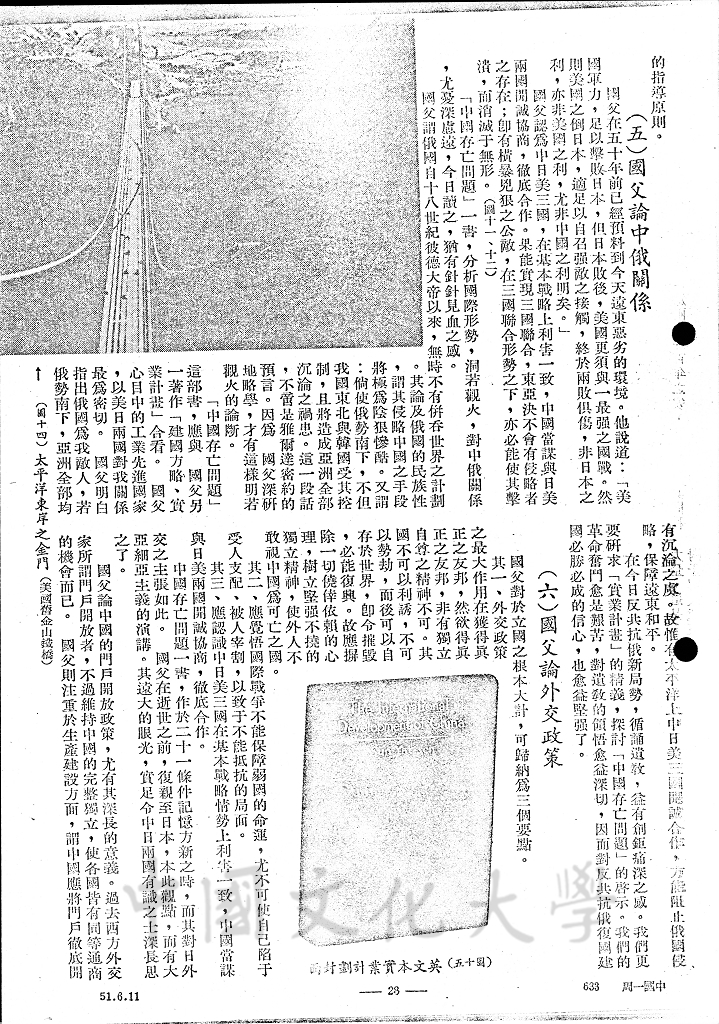 的指導原則。
（五）國父論中俄關係
國父在五十年前已經預料到今天遠東惡劣的環境。他說道：「美
國軍力，足以擊敗日本，但日本敗後，美國更須與一最强之國戰。然
則美國之倒日本，適足以自召强敵之接觸，終於兩敗俱傷，非日本之
利，亦非美國之利，尤非中國之利明矣。」
國父認爲中日美三國，在基本戰略上利害一致，中國當謀與日美
兩國開誠協商，徹底合作。果能實現三國聯合，東亞決不會有侵略者
之存在；卽有橫暴兇狠之公敵，在三國聯合形勢之下，亦必能使其擊
潰，而消滅于無形。（圖十一、十二）
「中國存亡問題」一書，分析國際形勢，洞若觀火，對中俄關係
，尤憂深慮遠，今日讀之，猶有針針見血之感。
國父謂俄國自十八世紀彼德大帝以來，無時不有併吞世界之計劃
。其論及俄國的民族性
，謂其侵略中國之手段
將極爲陰狠慘酷。又謂
：倘使俄勢南下，不但
我國東北與韓國受其控
制，且將造成亞洲全部
沉淪之禍患。這一段話
，不啻是雅爾達密約的
預言。因爲　國父深研
地略學，才有這樣明若
觀火的論斷。
「中國存亡問題」
這部書，應與　國父另
一著作「建國方略、實
業計畫」合看。　國父
心目中的工業先進國家
，以美日兩國對我關係
最爲密切。　國父明白
指出俄國爲我敵人，若
俄勢南下，亞洲全部均
↑　（圖十四）太平洋東岸之金門（美國舊金山鐵橋）
有沉淪之虞。故惟有太平洋上中日美三國開誠合作，方能阻止俄國侵
略，保障遠東和平。
在今日反共抗俄新局勢，循誦遺敎，益有創鉅痛深之感。我們更
要硏求「實業計畫」的精義，探討「中國存亡問題」的啓示。我們的
革命奮鬥愈是艱苦，對遺敎的領悟愈益深切，因而對反共抗俄復國建
國必勝必成的信心，也愈益堅强了。
（六）國父論外交政策
國父對於立國之根本大計，可歸納爲三個要點。
其一、外交政策
之最大作用在獲得眞
正之友邦，然欲得眞
正之友邦，非有獨立
自尊之精神不可。其
國不可以利誘，不可
以勢劫，而後可以自
存於世界，卽令摧毀
，必能復興。故應摒
除一切僥倖依賴的心
理，樹立堅强不撓的
獨立精神，使外人不
敢視中國爲可亡之國。
其二、應覺悟國際戰爭不能保障弱國的命運，尤不可使自己陷于
受人支配、被人宰割，以致于不能抵抗的局面。
其三、應認識中日美三國在基本戰略情勢上利害一致，中國當謀
與日美兩國開誠協商，徹底合作。
中國存亡問題一書，作於二十一條件記憶方新之時，而其對日外
交之主張如此。　國父在逝世之前，復親至日本，本此觀點，而有大
亞細亞主義的演講。其遠大的眼光，實足令中日兩國有識之士深長思
之了。
國父論中國的門戶開放政策，尤有其深長的意義。過去西方外交
家所謂門戶開放者，不過維持中國的完整獨立，使各國皆有同等通商
的機會而已。　國父則注重於生產建設方面，謂中國應將門戶徹底開
The International
Development of China
（圖十五）英文本實業計劃封面
中國文化大學
中國一周　633
— 28 —
51.6.11